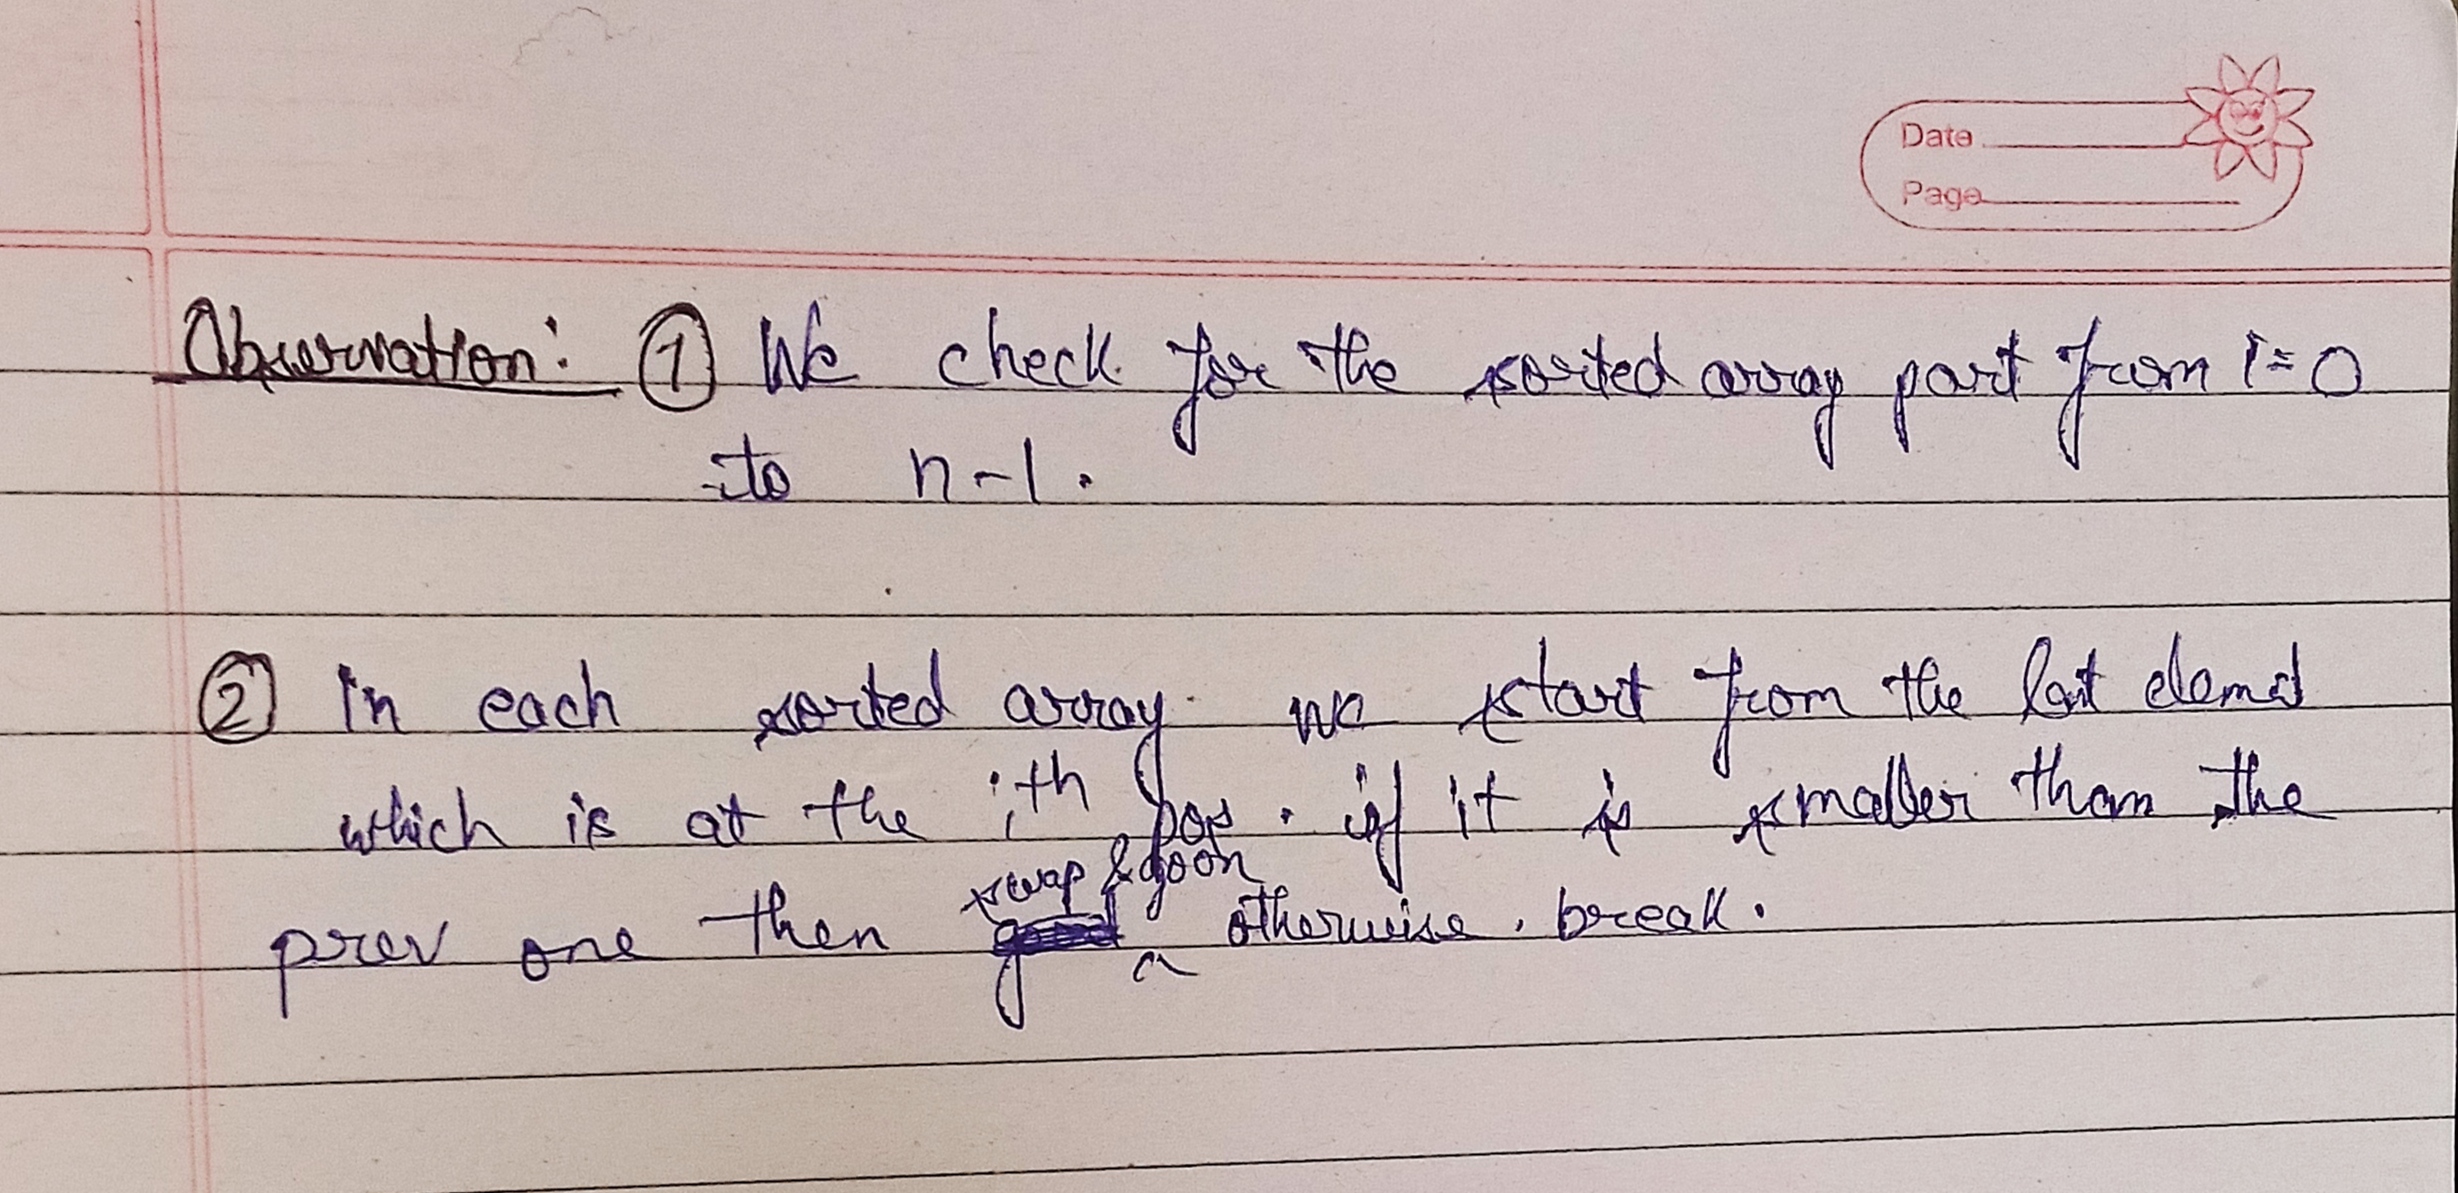 Date
Page
Observation: ① We check for the sorted array part from i=0
to n-1.
② in each sorted array we start from the last elemet
which is at the ith pos. if it is smaller than the
swap & goon
prev one then otherwise, break.